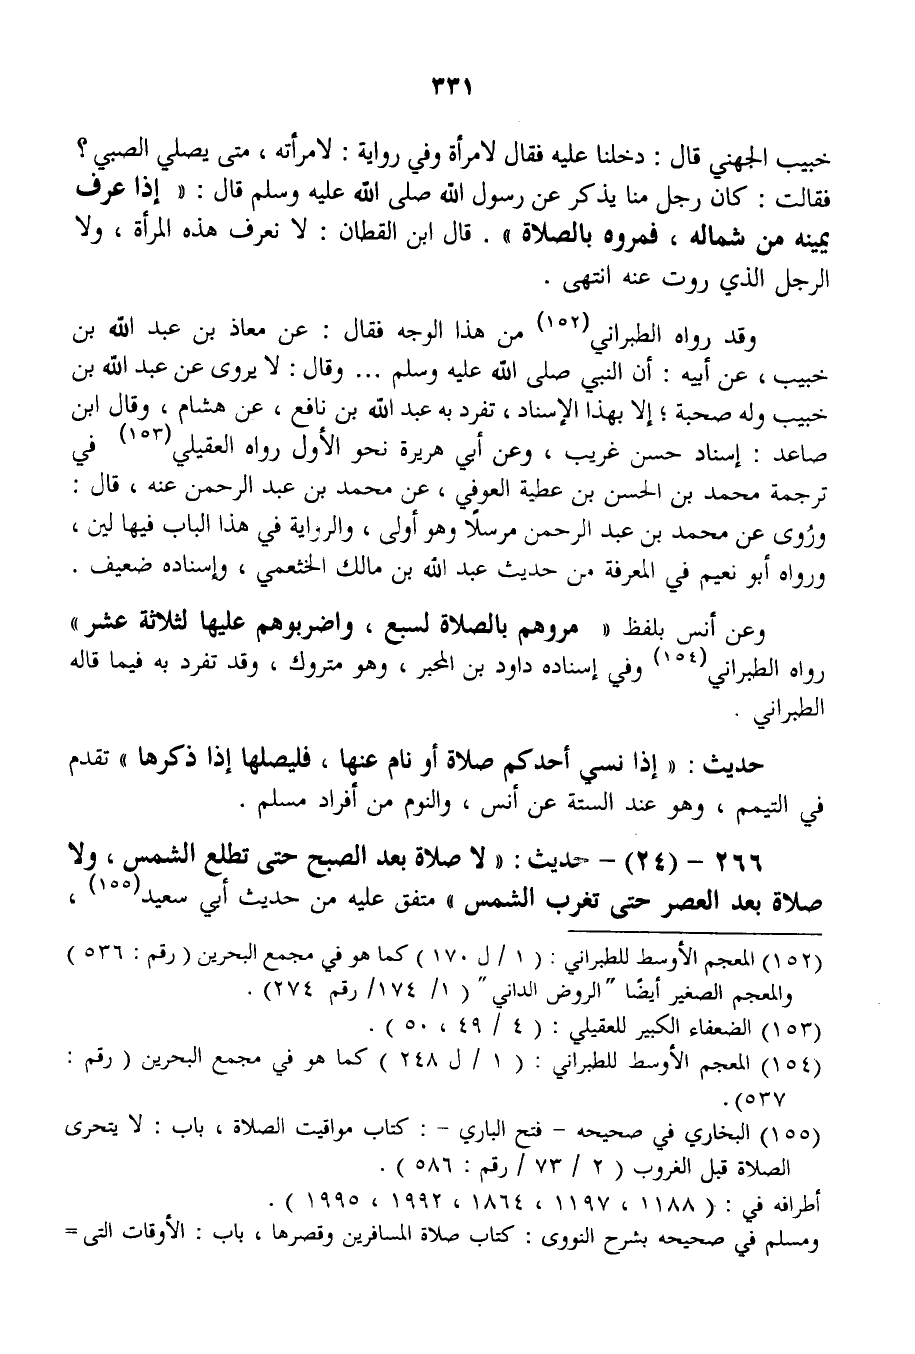 ٣٣١
خبيب الجهني قال : دخلنا عليه فقال لامرأة وفي رواية : لامرأته ، متى يصلي الصبي ؟
فقالت : كان رجل منا يذكر عن رسول الله صلى الله عليه وسلم قال : « إذا عرف
يمينه من شماله ، فمروه بالصلاة » . قال ابن القطان : لا نعرف هذه المرأة ، ولا
الرجل الذي روت عنه انتهى .
وقد رواه الطبراني(١٥٢) من هذا الوجه فقال : عن معاذ بن عبد الله بن
خبيب ، عن أبيه : أن النبي صلى الله عليه وسلم ... وقال : لا يروى عن عبد الله بن
خبيب وله صحبة ؛ إلا بهذا الإسناد ، تفرد به عبد الله بن نافع ، عن هشام ، وقال ابن
صاعد : إسناد حسن غريب ، وعن أبي هريرة نحو الأول رواه العقيلي(١٥٣) في
ترجمة محمد بن الحسن بن عطية العوفي ، عن محمد بن عبد الرحمن عنه ، قال :
ورُوى عن محمد بن عبد الرحمن مرسلًا وهو أولى ، والرواية في هذا الباب فيها لين ،
ورواه أبو نعيم في المعرفة من حديث عبد الله بن مالك الخثعمي ، وإسناده ضعيف .
وعن أنس بلفظ « مروهم بالصلاة لسبع ، واضربوهم عليها لثلاثة عشر »
رواه الطبراني(١٥٤) وفي إسناده داود بن المحبر ، وهو متروك ، وقد تفرد به فيما قاله
الطبراني .
حديث : « إذا نسي أحدكم صلاة أو نام عنها ، فليصلها إذا ذكرها » تقدم
في التيمم ، وهو عند الستة عن أنس ، والنوم من أفراد مسلم .
٢٦٦ - (٢٤) - حديث : « لا صلاة بعد الصبح حتى تطلع الشمس ، ولا
صلاة بعد العصر حتى تغرب الشمس » متفق عليه من حديث أبي سعيد(١٥٥) ،
(١٥٢) المعجم الأوسط للطبراني : ( ١ / ل ١٧٠ ) كما هو في مجمع البحرين ( رقم : ٥٣٦ )
والمعجم الصغير أيضًا "الروض الداني" ( ١/ ١٧٤/ رقم ٢٧٤) .
(١٥٣) الضعفاء الكبير للعقيلي : ( ٤ / ٤٩ ، ٥٠ ) .
(١٥٤) المعجم الأوسط للطبراني : ( ١ / ل ٢٤٨ ) كما هو في مجمع البحرين ( رقم :
٥٣٧).
(١٥٥) البخاري في صحيحه - فتح الباري - : كتاب مواقيت الصلاة ، باب : لا يتحرى
الصلاة قبل الغروب ( ٢ / ٧٣ / رقم : ٥٨٦ ) .
أطرافه في : ( ١١٨٨ ، ١١٩٧ ، ١٨٦٤ ، ١٩٩٢ ، ١٩٩٥ ) .
ومسلم في صحيحه بشرح النووى : كتاب صلاة المسافرين وقصرها ، باب : الأوقات التى =